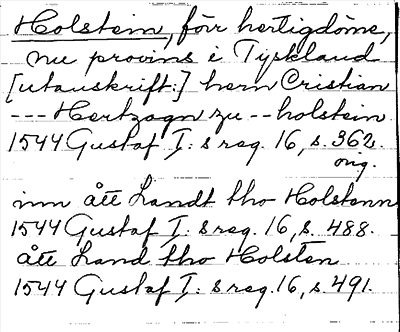 Holstein, förr hertigdöme,
nu provins i Tyskland
[utanskrift:] hern Cristian
--- Hertzogn zu -- holstein
1544 Gustaf I:s reg. 16, s. 362.
orig.
inn ått Landt tho Holstenn
1544 Gustaf I:s reg. 16, s. 488.
ått Land tho Holsten
1544 Gustaf I:s reg. 16, s. 491.